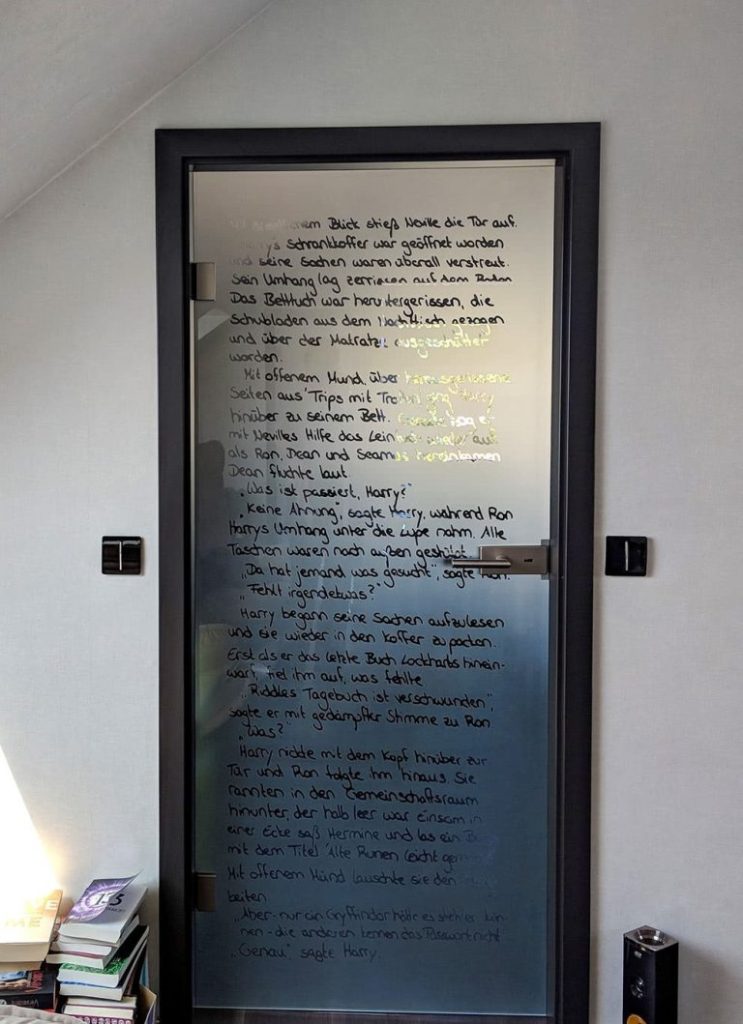 nem Blick stieß Neville die Tür auf.
Harrys Schrankkoffer war geöffnet worden
und seine Sachen waren überall verstreut.
Sein Umhang lag zerrissen auf dem Boden
Das Bettuch war heruntergerissen, die
Schubladen aus dem Nachttisch gezogen
und über der Matratze ausgeschüttet
worden.
Mit offenem Mund, über herausgerissene
Seiten aus 'Trips mit Trollen' ging Harry
hinüber zu seinem Bett. Gerade zog er
mit Nevilles Hilfe das Leintuch wieder auf
als Ron, Dean und Seamus hereinkamen
Dean fluchte laut
„Was ist passiert, Harry?"
„Keine Ahnung", sagte Harry, während Ron
Harrys Umhang unter die Lupe nahm. Alle
Taschen waren nach außen gestülpt.
„Da hat jemand was gesucht", sagte Ron.
„Fehlt irgendetwas?"
Harry begann seine Sachen aufzulesen
und sie wieder in den Koffer zu packen.
Erst als er das letzte Buch Lockharts hinein-
warf, fiel ihm auf, was fehlte
„Riddles Tagebuch ist verschwunden",
sagte er mit gedämpfter Stimme zu Ron
„Was?"
Harry nickte mit dem Kopf hinüber zur
Tür und Ron folgte ihm hinaus. Sie
rannten in den Gemeinschaftsraum
hinunter, der halb leer war Einsam in
einer Ecke saß Hermine und las ein
mit dem Titel 'Alte Runen leicht
Mit offenem Mund lauschte sie den
beiten
„Aber - nur ein Gryffindor hätte es stehlen kön-
nen - die anderen kennen das Passwort nicht
„Genau" sagte Harry.